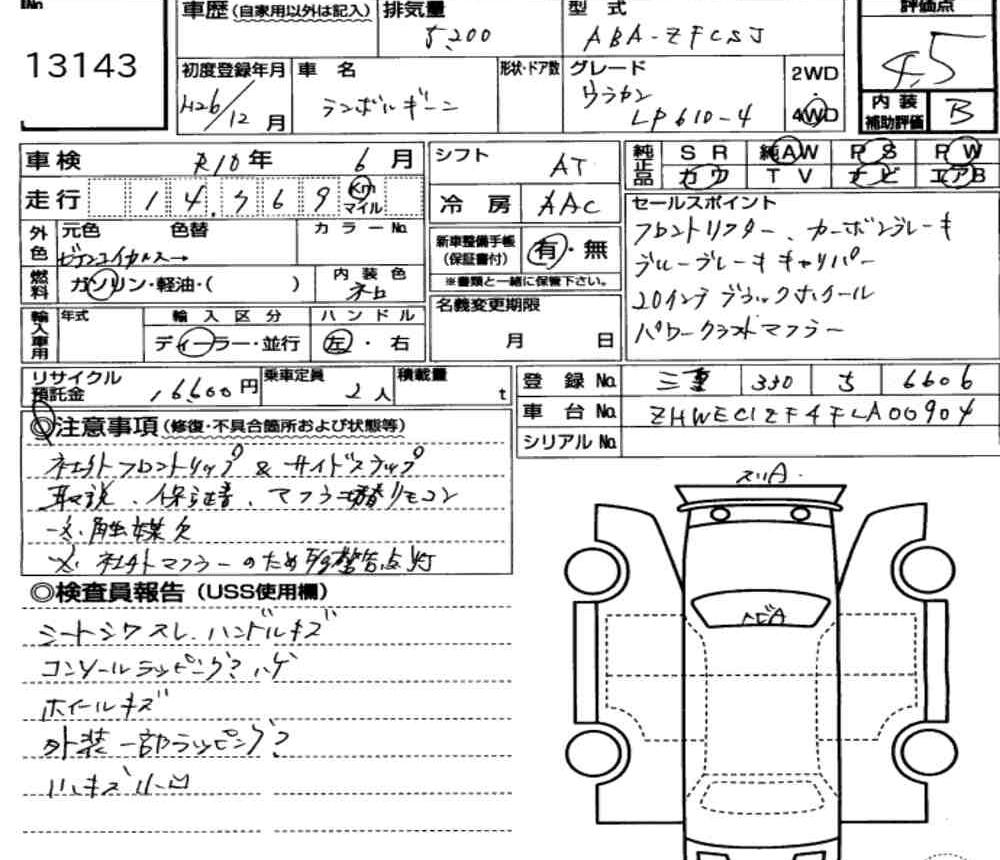 No
13143
車歴(自家用以外は記入) 排気量 型式 評価点
5,200 ABA-ZFCSJ 4.5
初度登録年月 車名 形状・ドア数 グレード 2WD・4WD
H26/12月 ランボルギーニ ウラカン LP610-4
内装補助評価 B
車検 R10年 6月
走行 14,369 Km マイル
シフト AT
冷房 AAC
純正品 SR 純AW PS PW
カワ TV ナビ エアB
外色 元色 色替 カラーNo.
内装色 クロ
燃料 ガソリン・軽油・( )
新車整備手帳(保証書付) 有・無
※書類と一緒に保管下さい。
名義変更期限
月 日
セールスポイント
フロントリフター、カーボンブレーキ
ブルーブレーキキャリパー
20インチブラックホイール
パワークラフトマフラー
輸入車用 年式 輸入区分 ハンドル
ディーラー・並行 左・右
リサイクル預託金 16,600円 乗車定員 2人 積載量 t
登録No. 三重 330 ち 6606
車台No. ZHWEC1ZF4FLA00904
シリアルNo.
◎注意事項(修復・不具合箇所および状態等)
社外フロントリップ & サイドステップ
取説、保証書、マフラー切替リモコン
※.触媒欠
※.社外マフラーのため排警告点灯
◎検査員報告(USS使用欄)
シートシワスレ、ハンドルキズ
コンソールラッピング?ハゲ
ホイールキズ
外装一部ラッピング?
小キズ小凹
スリA
トビA